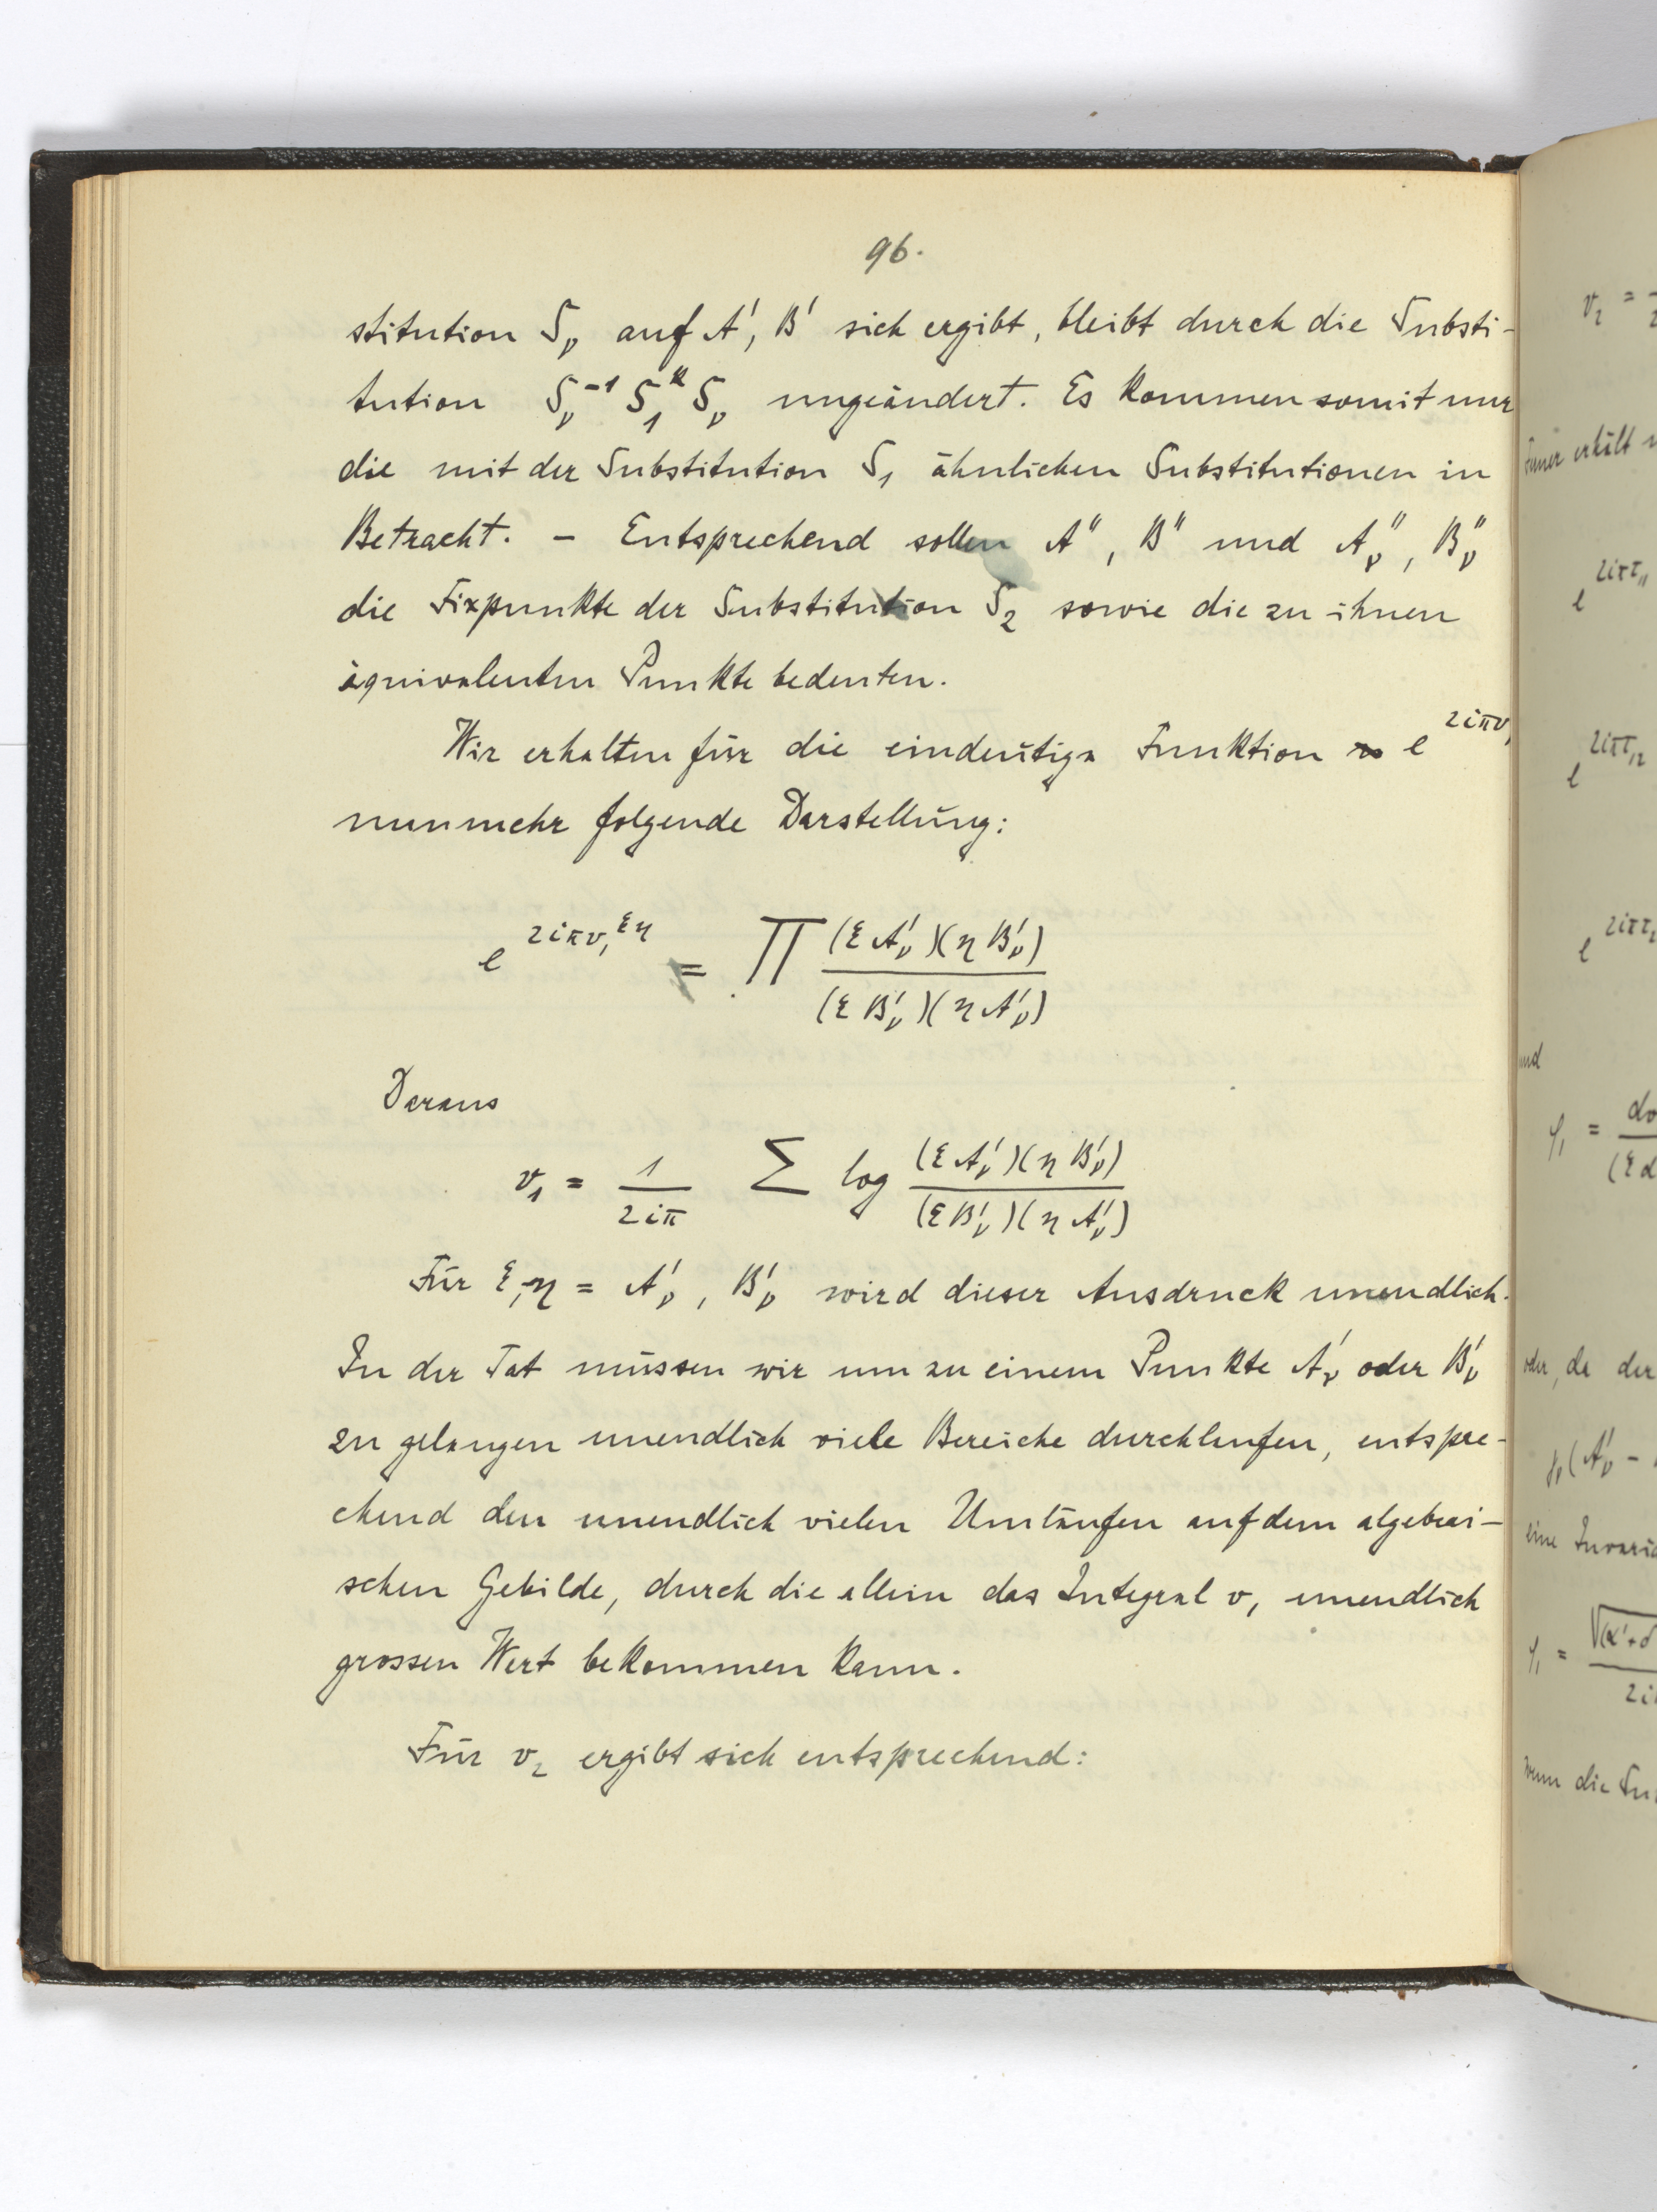 96.
stitution S_ν auf A', B' sich ergibt, bleibt durch die Substi-
tution S_ν^{-1} S_1^k S_ν ungeändert. Es kommen somit nur
die mit der Substitution S_1 ähnlichen Substitutionen in
Betracht. – Entsprechend sollen A'', B'' und A_ν'', B_ν''
die Fixpunkte der Substitution S_2 sowie die zu ihnen
äquivalenten Punkte bedeuten.
Wir erhalten für die eindeutige Funktion e^{2iπv_1}
nunmehr folgende Darstellung:
e^{2iπv_1^{ξη}} = ∏ (ξA'_ν)(ηB'_ν) / (ξB'_ν)(ηA'_ν)
Daraus
v_1 = 1/2iπ Σ log (ξA'_ν)(ηB'_ν) / (ξB'_ν)(ηA'_ν)
Für ξ,η = A'_ν, B'_ν wird dieser Ausdruck unendlich.
In der Tat müssen wir um zu einem Punkte A'_ν oder B'_ν
zu gelangen unendlich viele Bereiche durchlaufen, entspre-
chend den unendlich vielen Umläufen auf dem algebrai-
schen Gebilde, durch die allein das Integral v_1 unendlich
grossen Wert bekommen kann.
Für v_2 ergibt sich entsprechend:
v_2 =
erhält
e^{2iπτ_11}
e^{2iπτ_12}
e^{2iπτ_2
und
φ_1 = dv
(ξd
oder, da der
(A'_ν –
eine Invaria
φ_1 = √(α'+δ
2i
wenn die Su